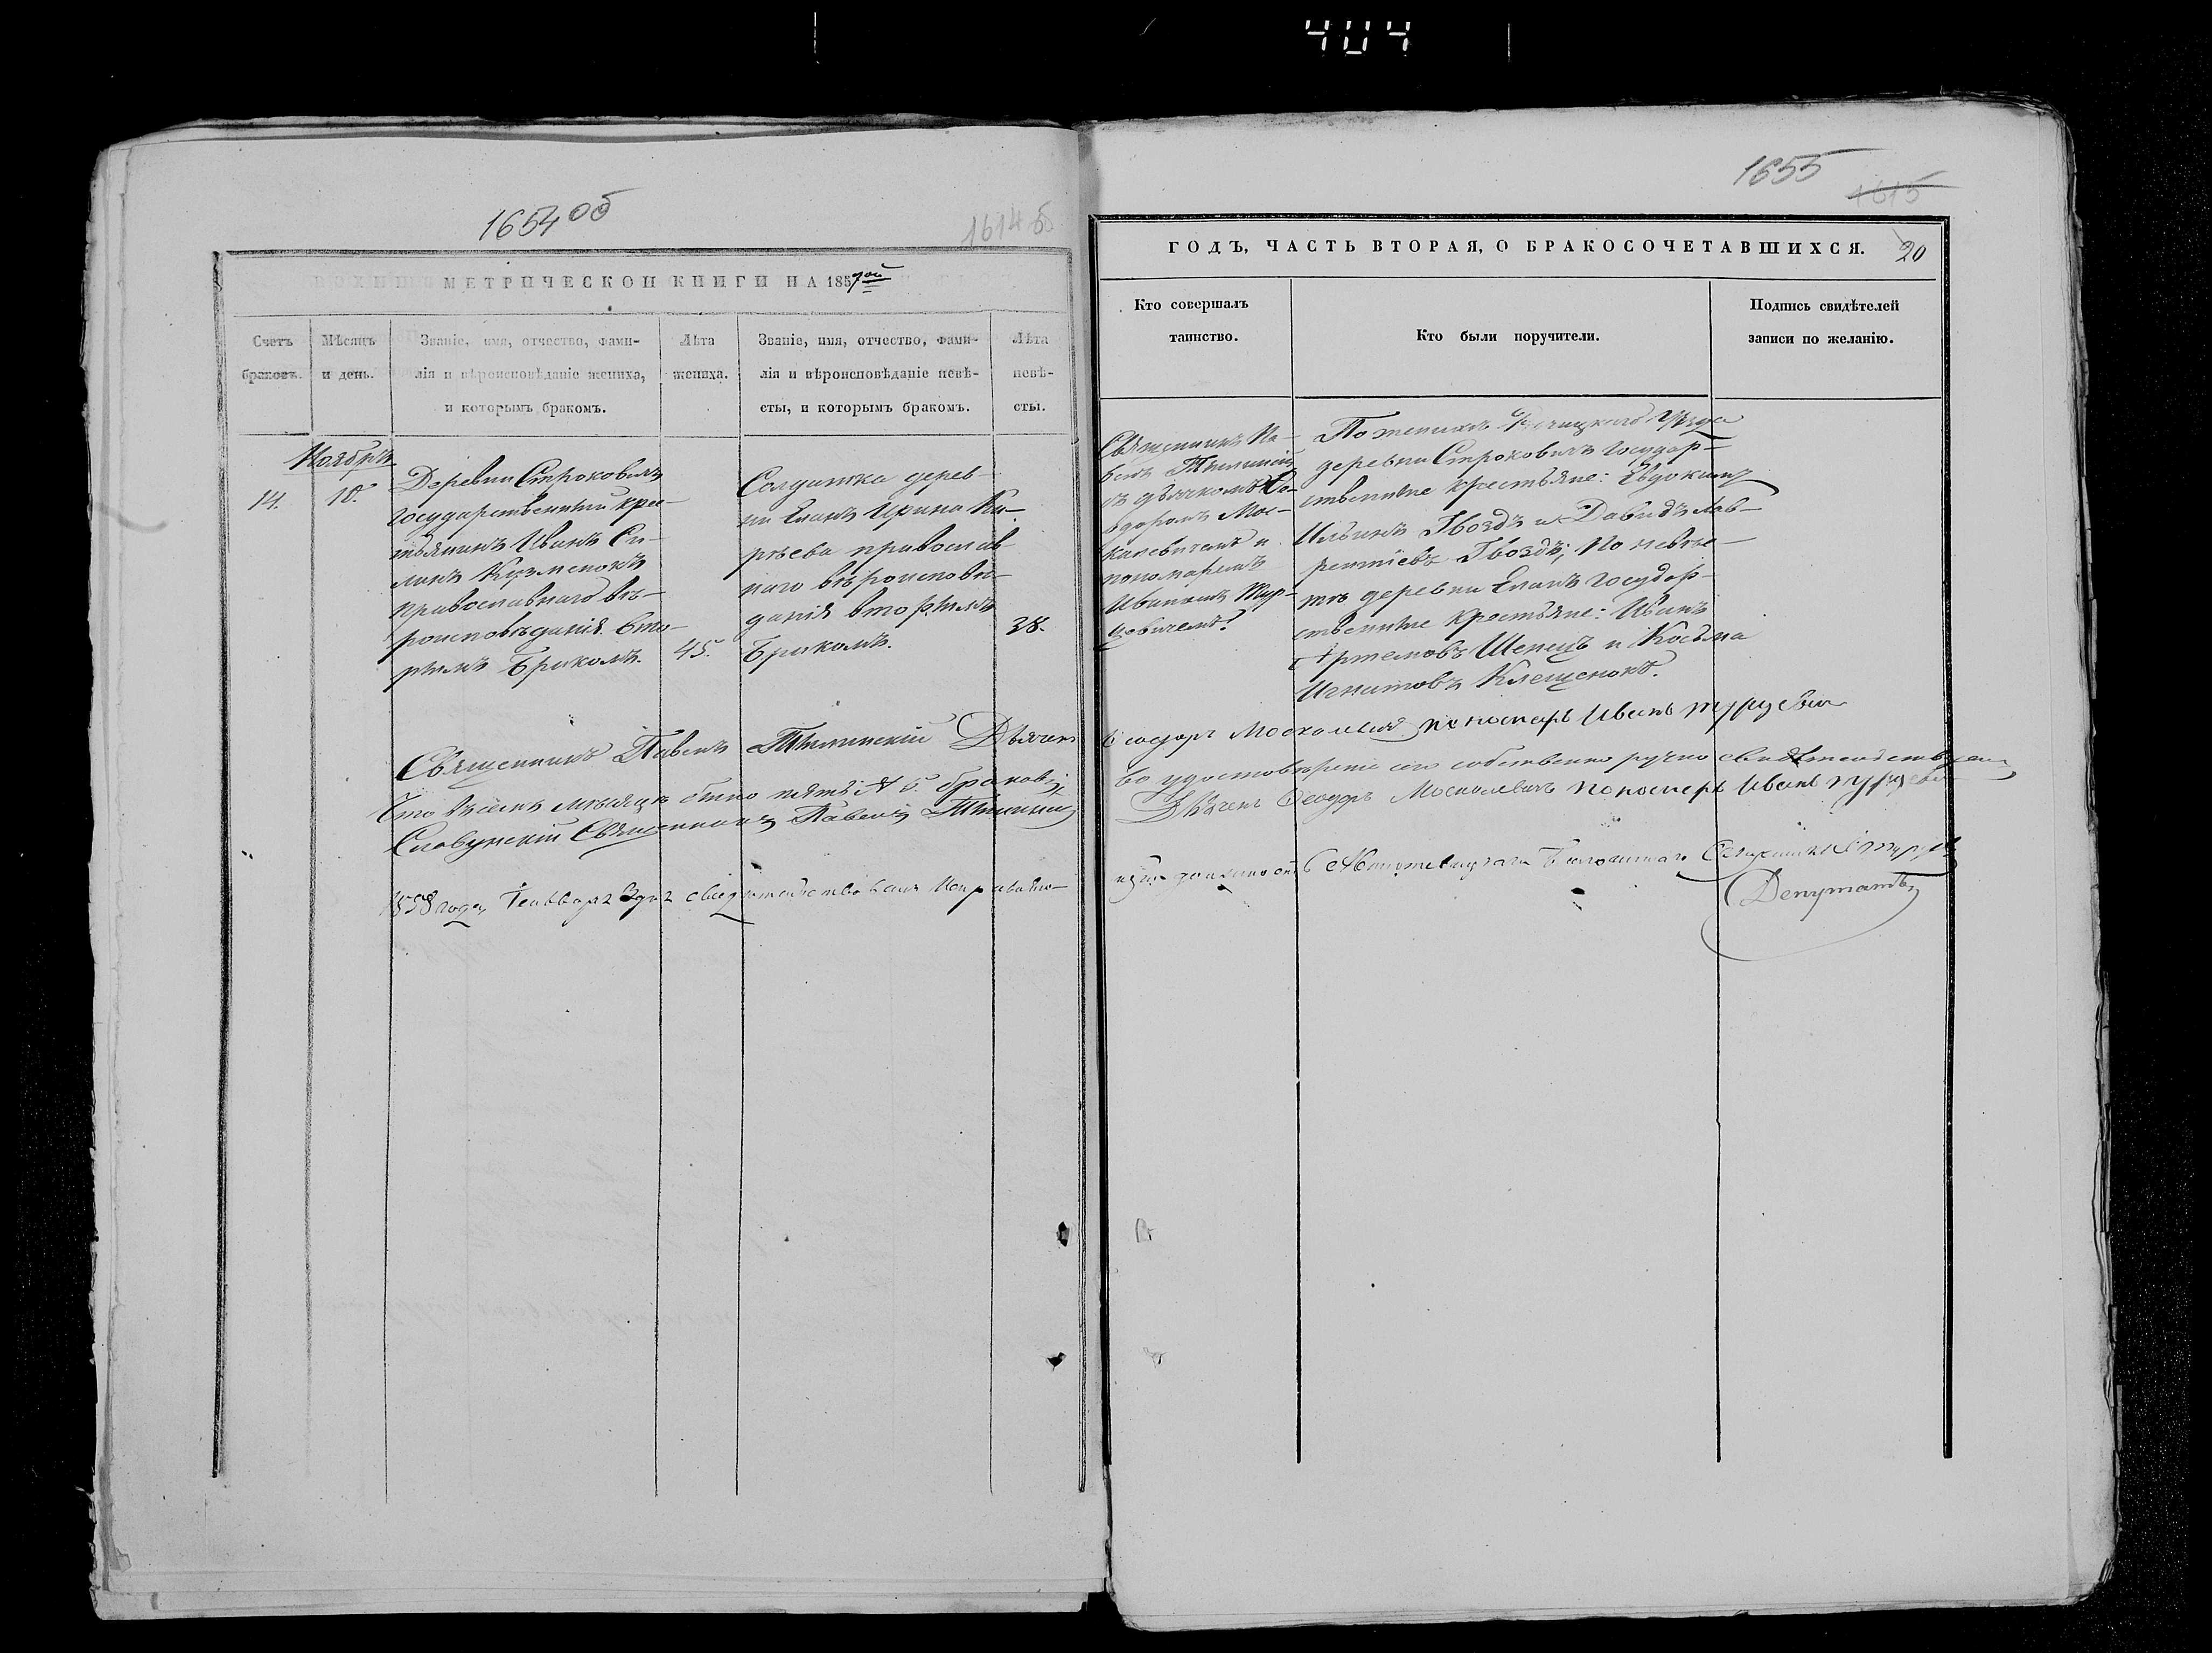 404
1654 об
1614 об
МЕТРИЧЕСКОЙ КНИГИ НА 1857ой
Счетъ браковъ.
Мѣсяцъ и день.
Званіе, имя, отчество, фами-
лія и вѣроисповѣданіе жениха,
и которымъ бракомъ.
Лѣта
жениха.
Званіе, имя, отчество, фами-
лія и вѣроисповѣданіе невѣ-
сты, и которымъ бракомъ.
Лѣта
невѣ-
сты.
Ноябрь
14.
10.
Деревни Строковичъ
государственный кре-
стьянинъ Иванъ Си-
линъ Кузменокъ
православнаго вѣ-
роисповѣданія вто-
рымъ бракомъ.
45.
Солдатка дерев-
ни Еланъ Ирина Ки-
рѣева православ-
наго вѣроисповѣ-
данія вторымъ
бракомъ.
38.
Священникъ Павелъ Дьячекъ
Что въ семъ мѣсяцѣ было пять 5 браковъ,
Священникъ Павелъ
1858 года Генваря 3 дня свидѣтельствовалъ
1655
1615
ГОДЪ, ЧАСТЬ ВТОРАЯ, О БРАКОСОЧЕТАВШИХСЯ.
20
Кто совершалъ
таинство.
Кто были поручители.
Подпись свидѣтелей
записи по желанію.
Священникъ Па-
велъ
съ дьячкомъ Ѳе-
одоромъ Мос-
калевичемъ и
пономаремъ
Иваномъ Тур-
цевичемъ.
По женихѣ уѣзда
деревни Строковичъ государ-
ственные крестьяне: Евдокимъ
Ильинъ Гвоздь и Давидъ Лав-
рентіевъ Гвоздь; по невѣс-
тѣ деревни Еланъ государ-
ственные крестьяне: Иванъ
Артемовъ Шепецъ и Косьма
Игнатовъ Клещенокъ.
Ѳеодоръ Москалевичъ пономарь Иванъ Турцевичъ
во удостовѣреніе сего собственно ручно
Дьячекъ Ѳеодоръ Москалевичъ пономарь Иванъ Турцевичъ
должность Священникъ
Депутатъ